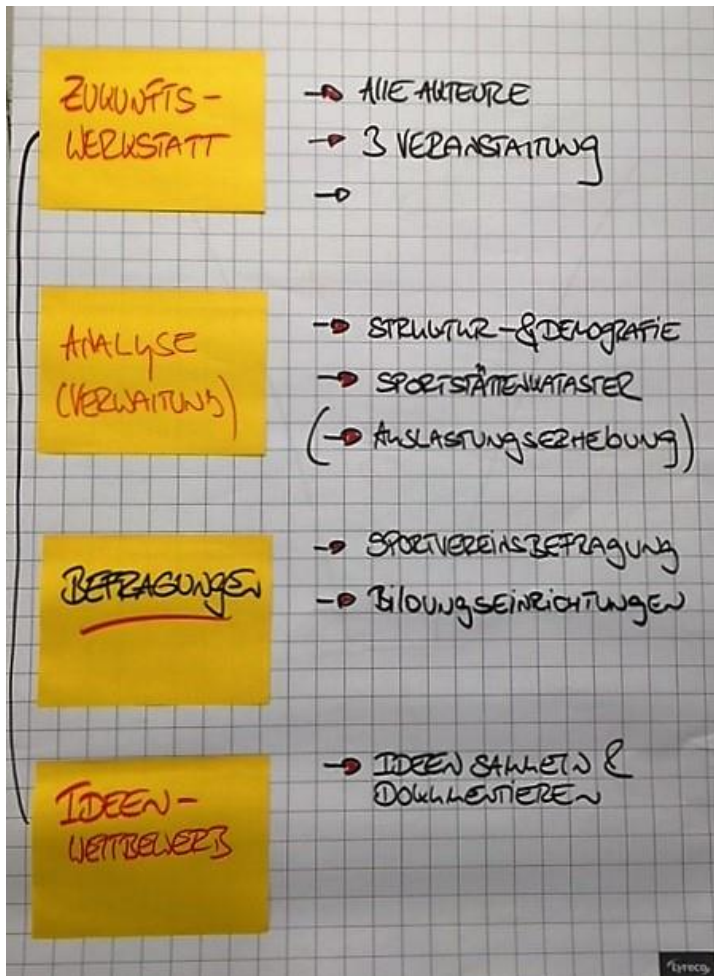 ZUKUNFTS-
WERKSTATT
→ AllE AKTEURE
→ 3 VERANSTALTUNG
→
ANALYSE
(VERWALTUNG)
→ STRUKTUR-&DEMOGRAFIE
→ SPORTSTÄTTENKATASTER
(→ AUSLASTUNGSERHEBUNG)
BEFRAGUNGEN
→ SPORTVEREINSBEFRAGUNG
→ BILDUNGSEINRICHTUNGEN
IDEEN-
WETTBEWERB
→ IDEEN SAMMELN &
DOKUMENTIEREN
Lyreco